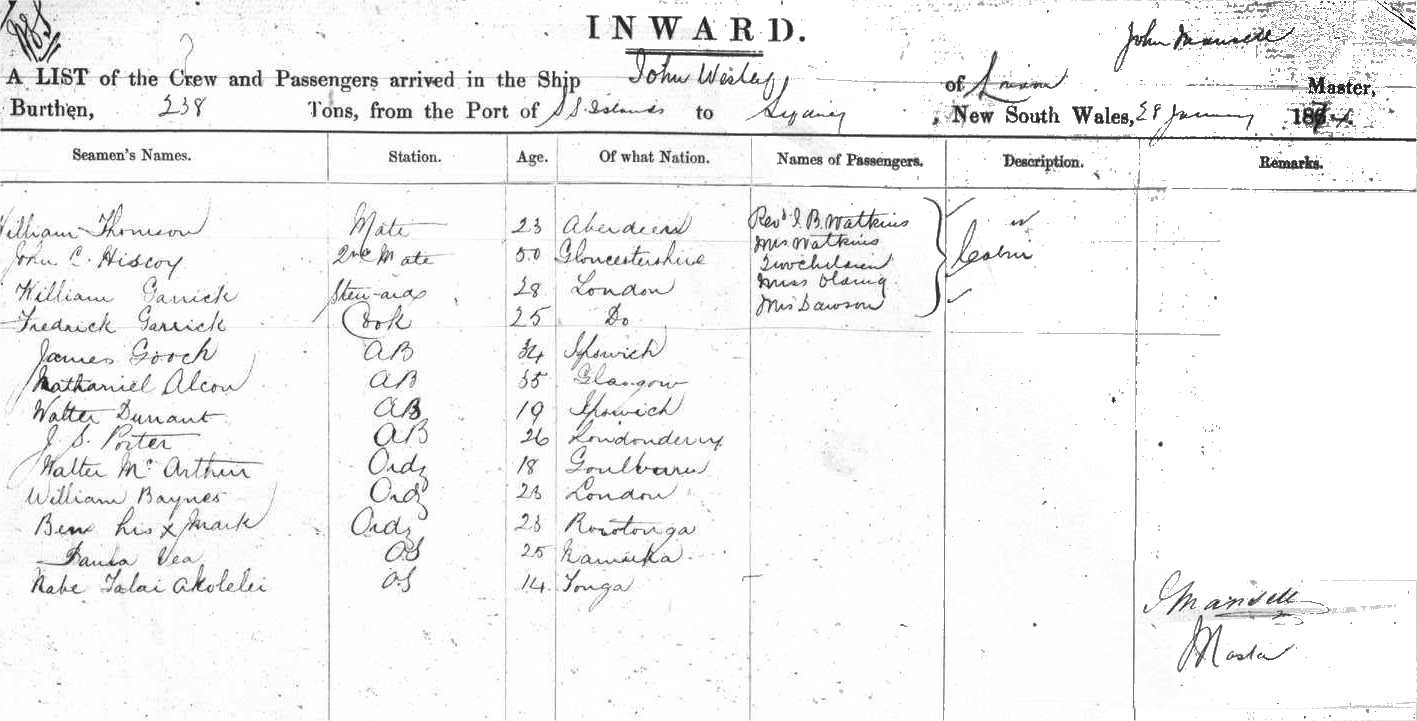 INWARD.
John Mansell
A LIST of the Crew and Passengers arrived in the Ship John Wesley of London Master,
Burthen, 238 Tons, from the Port of S S Islands to Sydney, New South Wales, 28 January 1874
Seamen's Names. Station. Age. Of what Nation. Names of Passengers. Description. Remarks.
William Thomson Mate 23 Aberdeen Revd J. B. Watkins
Mrs Watkins
John C. Hiscoy 2nd Mate 50 Gloucestershire Two children Cabin
William Garrick Steward 28 London Miss
Mrs Dawson
Fredrick Garrick Cook 25 Do
James Gooch AB 34 Ipswich
Nathaniel Alcon AB 35 Glasgow
Walter Durrant AB 19 Ipswich
J. S. Porter AB 26 Londonderry
Walter Mc Arthur Ordy 18 Goulburn
William Baynes Ordy 23 London
Ben his x Mark Ordy 23 Rorotonga
Vea OS 25 Namuka
Nabe Talai Akolelei OS 14 Tonga
J Mansell
Master